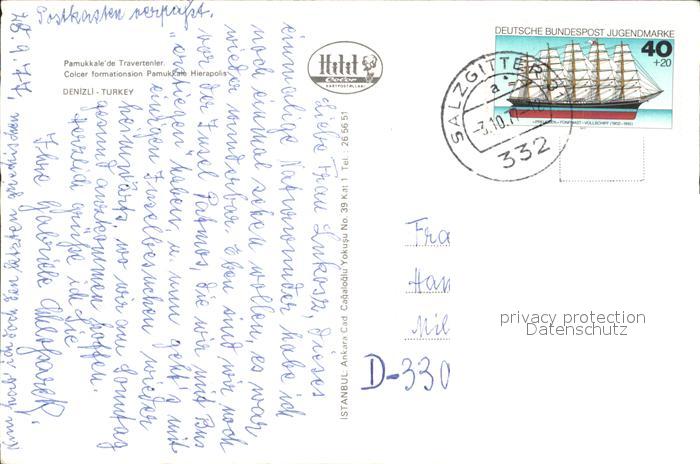 Postkasten verpaßt.
Pamukkale'de Travertenler.
Colcer formationsion Pamukkale Hierapolis
DENİZLİ - TURKEY
Hitit
Color
KARTPOSTALLARI
İSTANBUL: Ankara Cad. Cağaloğlu Yokuşu No. 39 Kat 1 Tel.: 26 56 51
Liebe Frau Dieses
einmalige Naturwunder habe ich
noch einmal sehen wollen, es war
wieder wunderbar. Eben sind wir noch
vor der Insel Patmos, die wir mit Bus
"erstiegen" haben, u. nun geht's mit
einigen Inselbesuchen wieder
heimwärts, wo wir am Sonntag
gesund anzukommen hoffen.
Herzlich grüße ich Sie
Ihre Gabriele
DEUTSCHE BUNDESPOST JUGENDMARKE
40
+20
»PREUSSEN« FÜNFMAST-VOLLSCHIFF (1902-1910)
SALZGITTER
a
-3.10.77
332
Fra
Han
Mil
D-330
privacy protection
Datenschutz